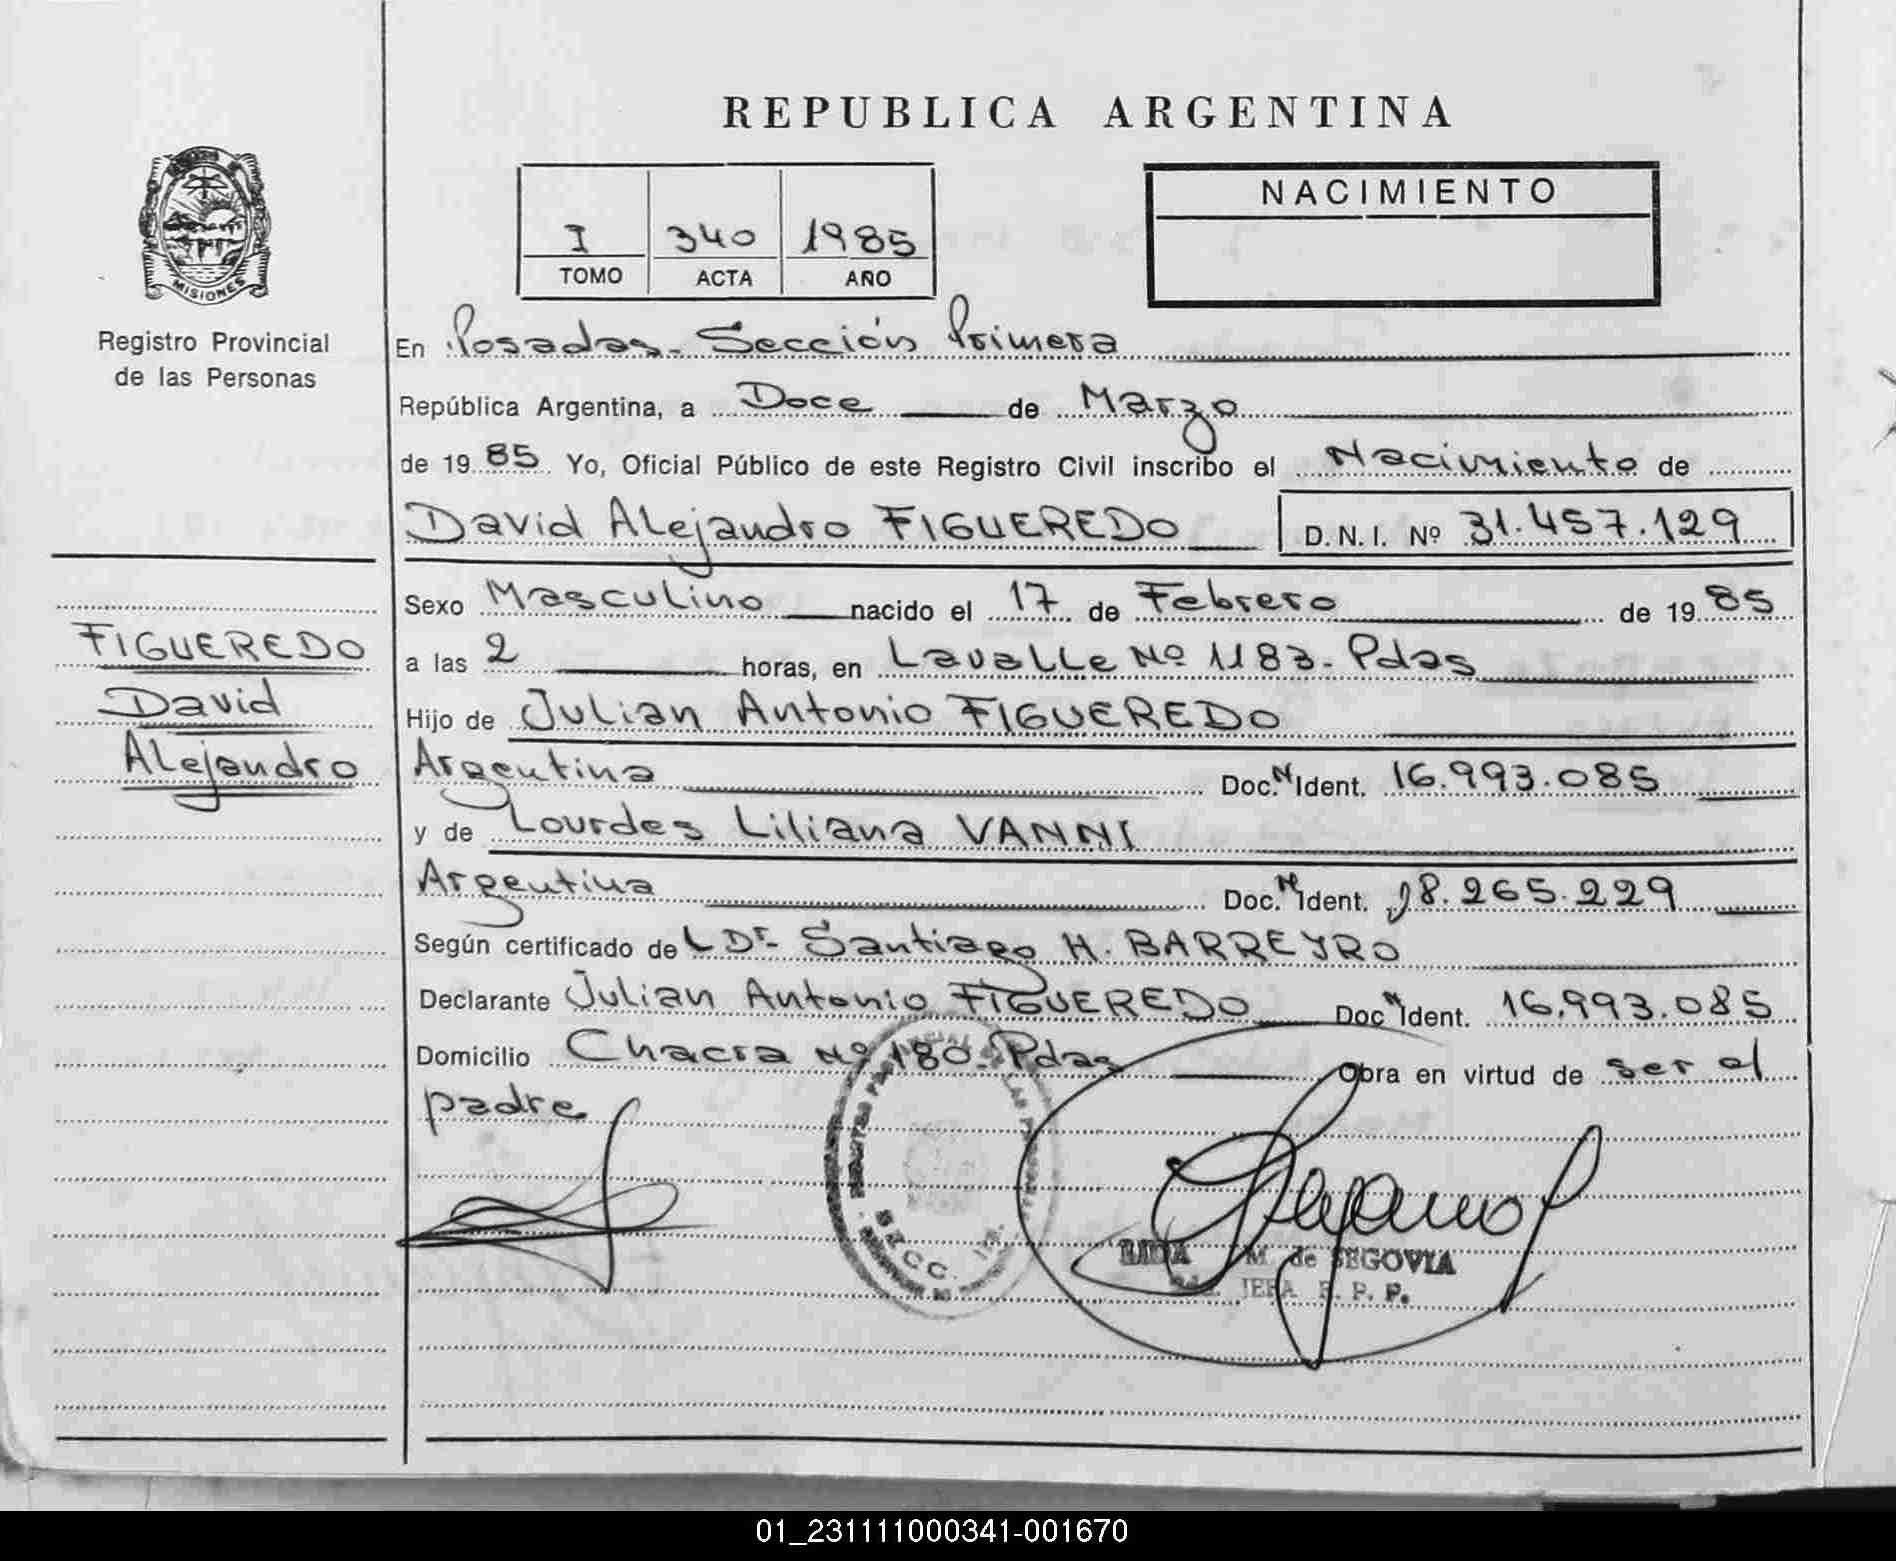 REPUBLICA ARGENTINA
NACIMIENTO
I 340 1985
TOMO ACTA AÑO
MISIONES
Registro Provincial
de las Personas
En Posadas. Sección Primera
República Argentina, a Doce de Marzo
de 1985 Yo, Oficial Público de este Registro Civil inscribo el Nacimiento de
David Alejandro FIGUEREDO D.N.I. Nº 31.457.129
Sexo Masculino nacido el 17 de Febrero de 1985
FIGUEREDO
David
Alejandro
a las 2 horas, en Lavalle Nº 1183. Pdas
Hijo de Julian Antonio FIGUEREDO
Argentina Doc. N Ident. 16.993.085
y de Lourdes Liliana VANNI
Argentina Doc. N Ident. 18.265.229
Según certificado de L Dr. Santiago H. BARREYRO
Declarante Julian Antonio FIGUEREDO Doc N Ident. 16.993.085
Domicilio Chacra Nº 180. Pdas Obra en virtud de ser el
padre
SECC. 1ra.
M. de SEGOVIA
JEFA R. P. P.
01_231111000341-001670